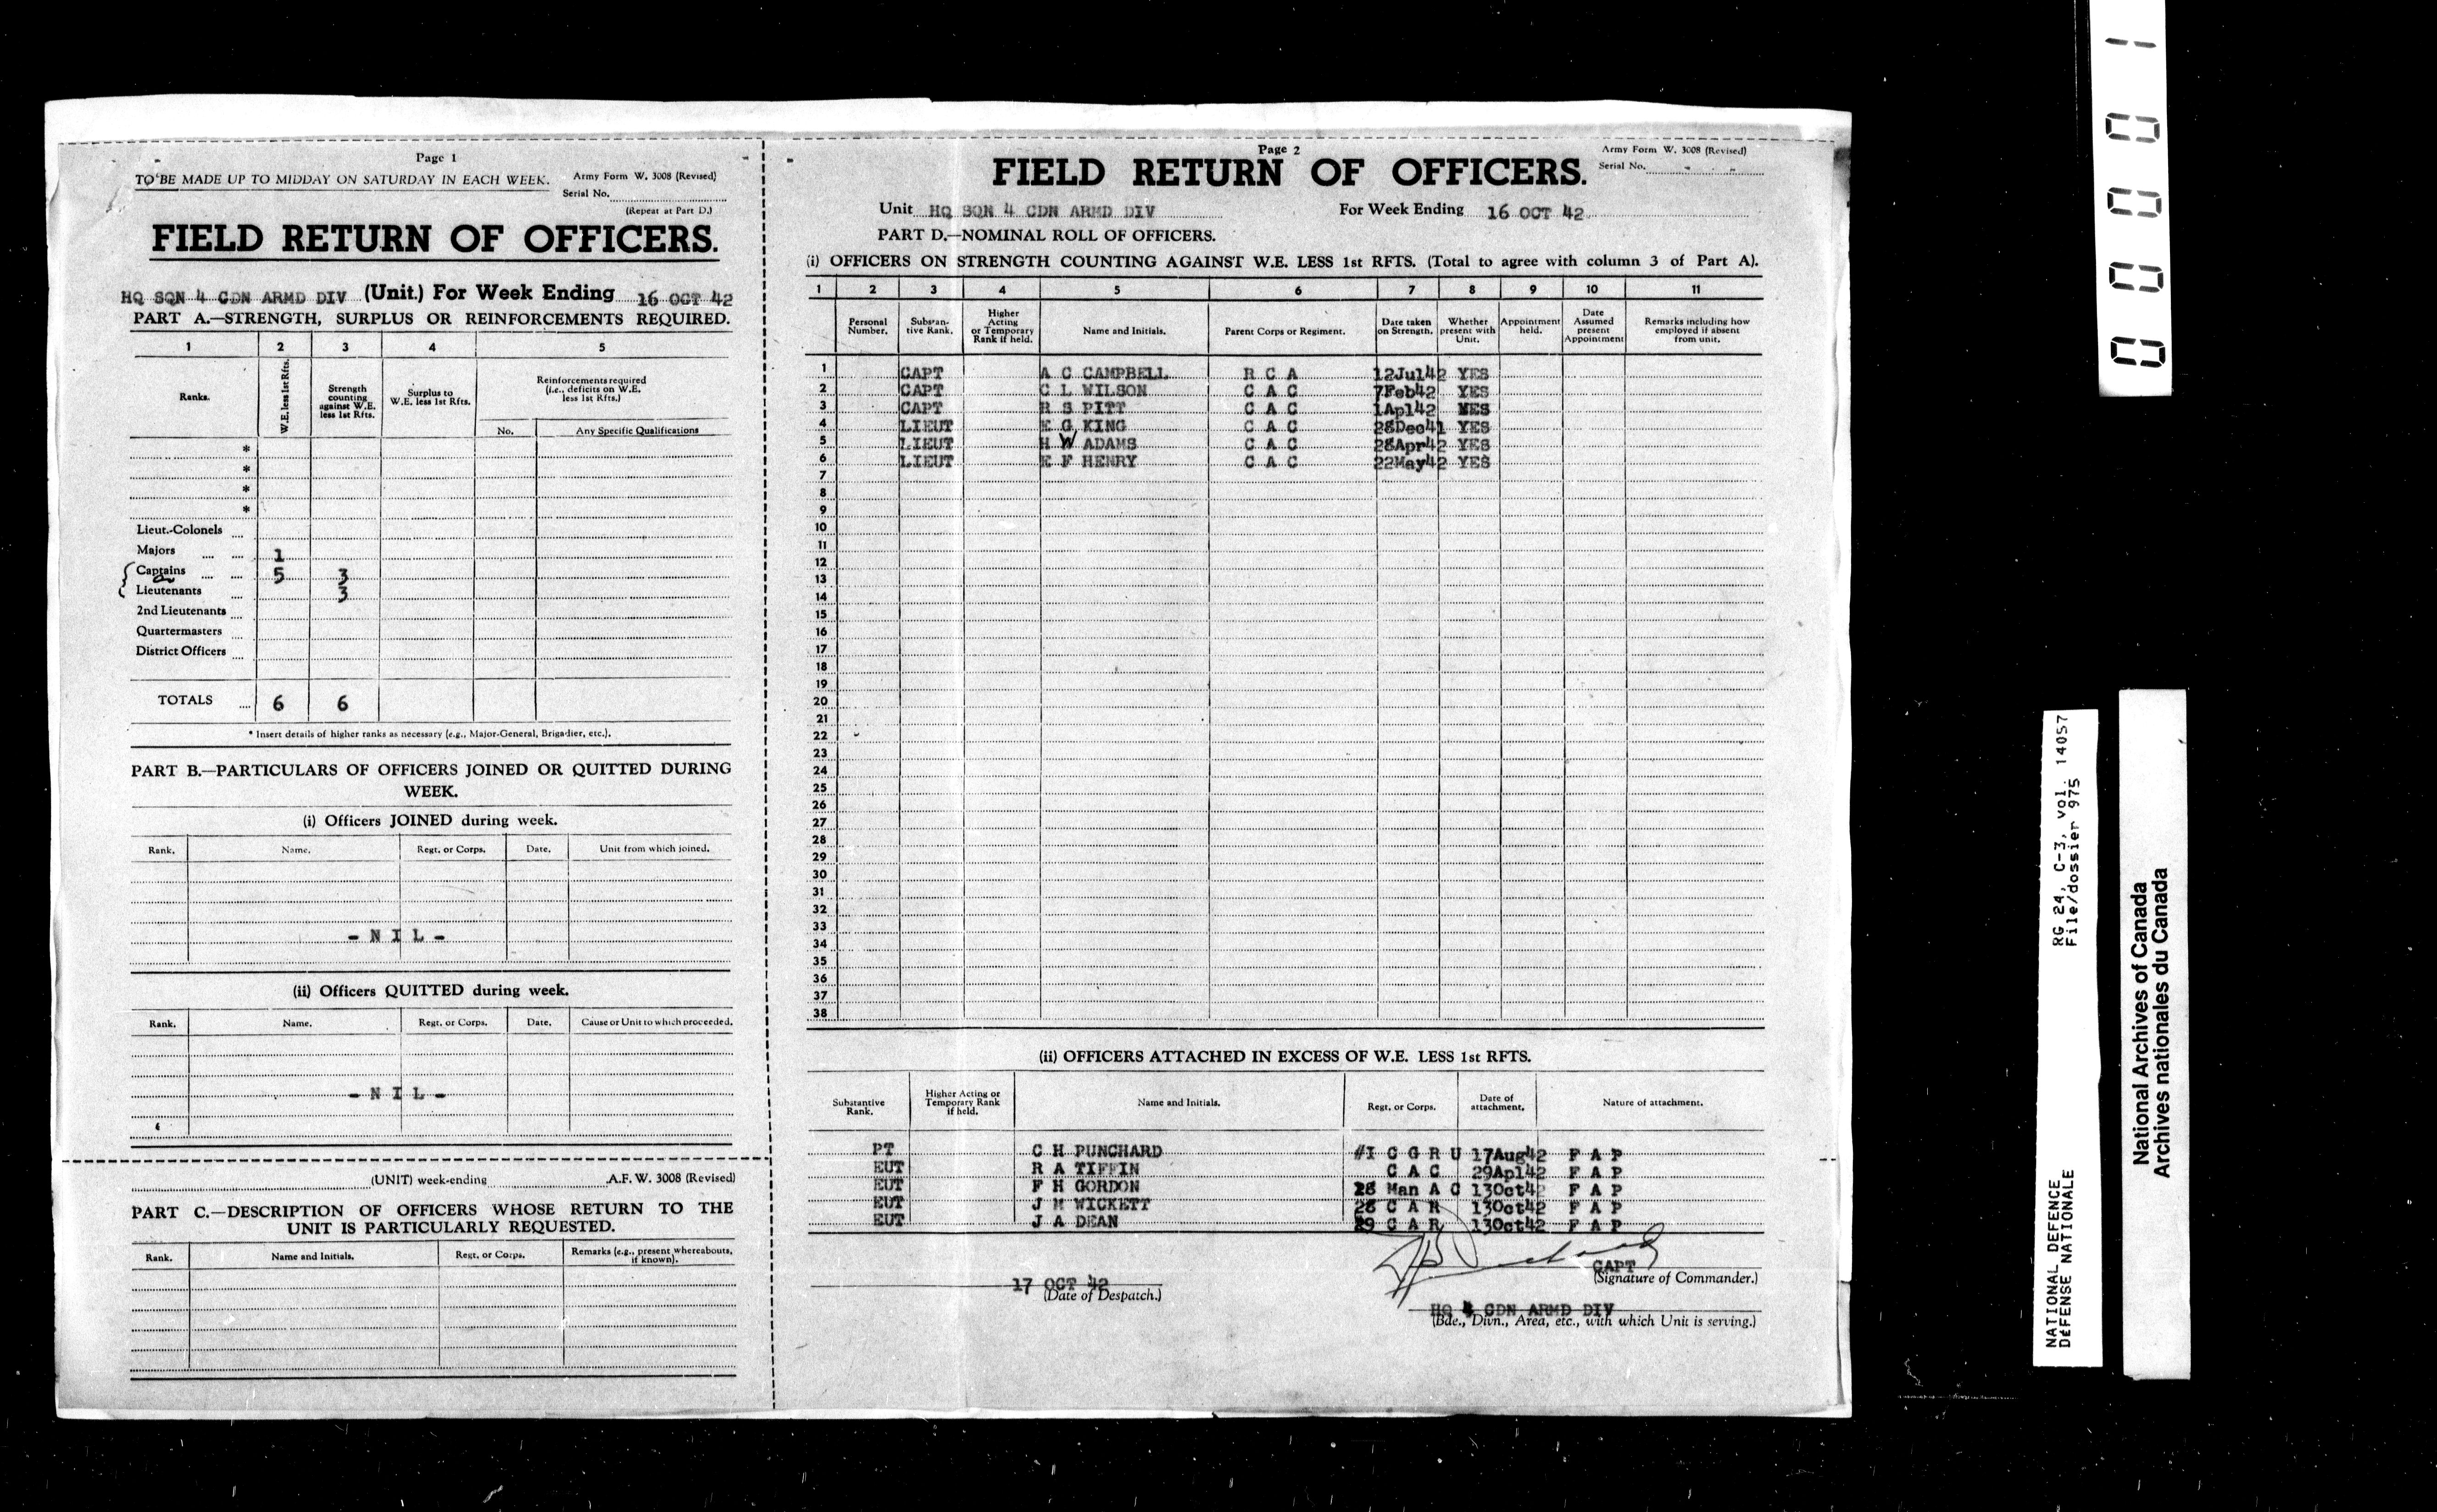 Page 1
TO BE MADE UP TO MIDDAY ON SATURDAY IN EACH WEEK. Army Form W. 3008 (Revised)
Serial No.
(Repeat at Part D.)
FIELD RETURN OF OFFICERS.
HQ SQN 4 CDN ARMD DIV (Unit.) For Week Ending 16 OCT 42
PART A.—STRENGTH, SURPLUS OR REINFORCEMENTS REQUIRED.
1 2 3 4 5
Ranks. W.E. less 1st Rfts. Strength counting against W.E. less 1st Rfts. Surplus to W.E. less 1st Rfts. Reinforcements required (i.e., deficits on W.E. less 1st Rfts.)
No. Any Specific Qualifications
*
*
*
*
Lieut.-Colonels ....
Majors .... .... 1
Captains .... .... 5 3
Lieutenants .... 3
2nd Lieutenants ....
Quartermasters ....
District Officers ....
TOTALS .... 6 6
* Insert details of higher ranks as necessary (e.g., Major-General, Brigadier, etc.).
PART B.—PARTICULARS OF OFFICERS JOINED OR QUITTED DURING
WEEK.
(i) Officers JOINED during week.
Rank. Name. Regt. or Corps. Date. Unit from which joined.
- N I L -
(ii) Officers QUITTED during week.
Rank. Name. Regt. or Corps. Date. Cause or Unit to which proceeded.
- N I L -
(UNIT) week-ending A.F. W. 3008 (Revised)
PART C.—DESCRIPTION OF OFFICERS WHOSE RETURN TO THE
UNIT IS PARTICULARLY REQUESTED.
Rank. Name and Initials. Regt. or Corps. Remarks (e.g., present whereabouts, if known).
Page 2
Army Form W. 3008 (Revised)
FIELD RETURN OF OFFICERS.
Serial No.
Unit HQ SQN 4 CDN ARMD DIV For Week Ending 16 OCT 42
PART D.—NOMINAL ROLL OF OFFICERS.
(i) OFFICERS ON STRENGTH COUNTING AGAINST W.E. LESS 1st RFTS. (Total to agree with column 3 of Part A).
1 2 3 4 5 6 7 8 9 10 11
Personal Number. Substantive Rank. Higher Acting or Temporary Rank if held. Name and Initials. Parent Corps or Regiment. Date taken on Strength. Whether present with Unit. Appointment held. Date Assumed present Appointment Remarks including how employed if absent from unit.
1 CAPT A C CAMPBELL R C A 12Jul42 YES
2 CAPT C L WILSON C A C 7Feb42 YES
3 CAPT R S PITT C A C 1Apl42 YES
4 LIEUT E G KING C A C 28Dec41 YES
5 LIEUT H W ADAMS C A C 28Apr42 YES
6 LIEUT E F HENRY C A C 22May42 YES
7
8
9
10
11
12
13
14
15
16
17
18
19
20
21
22
23
24
25
26
27
28
29
30
31
32
33
34
35
36
37
38
(ii) OFFICERS ATTACHED IN EXCESS OF W.E. LESS 1st RFTS.
Substantive Rank. Higher Acting or Temporary Rank if held. Name and Initials. Regt. or Corps. Date of attachment. Nature of attachment.
PT C H PUNCHARD #1 C G R U 17Aug42 F A P
EUT R A TIFFIN C A C 29Apl42 F A P
EUT F H GORDON 28 Man A C 13Oct42 F A P
EUT J M WICKETT 28 C A R 13Oct42 F A P
EUT J A DEAN 29 C A R 13Oct42 F A P
CAPT
(Signature of Commander.)
17 OCT 42
(Date of Despatch.)
HQ 4 CDN ARMD DIV
(Bde., Divn., Area, etc., with which Unit is serving.)
00001
NATIONAL DEFENCE RG 24, C-3, vol. 14057
DEFENSE NATIONALE File/dossier 975
National Archives of Canada
Archives nationales du Canada